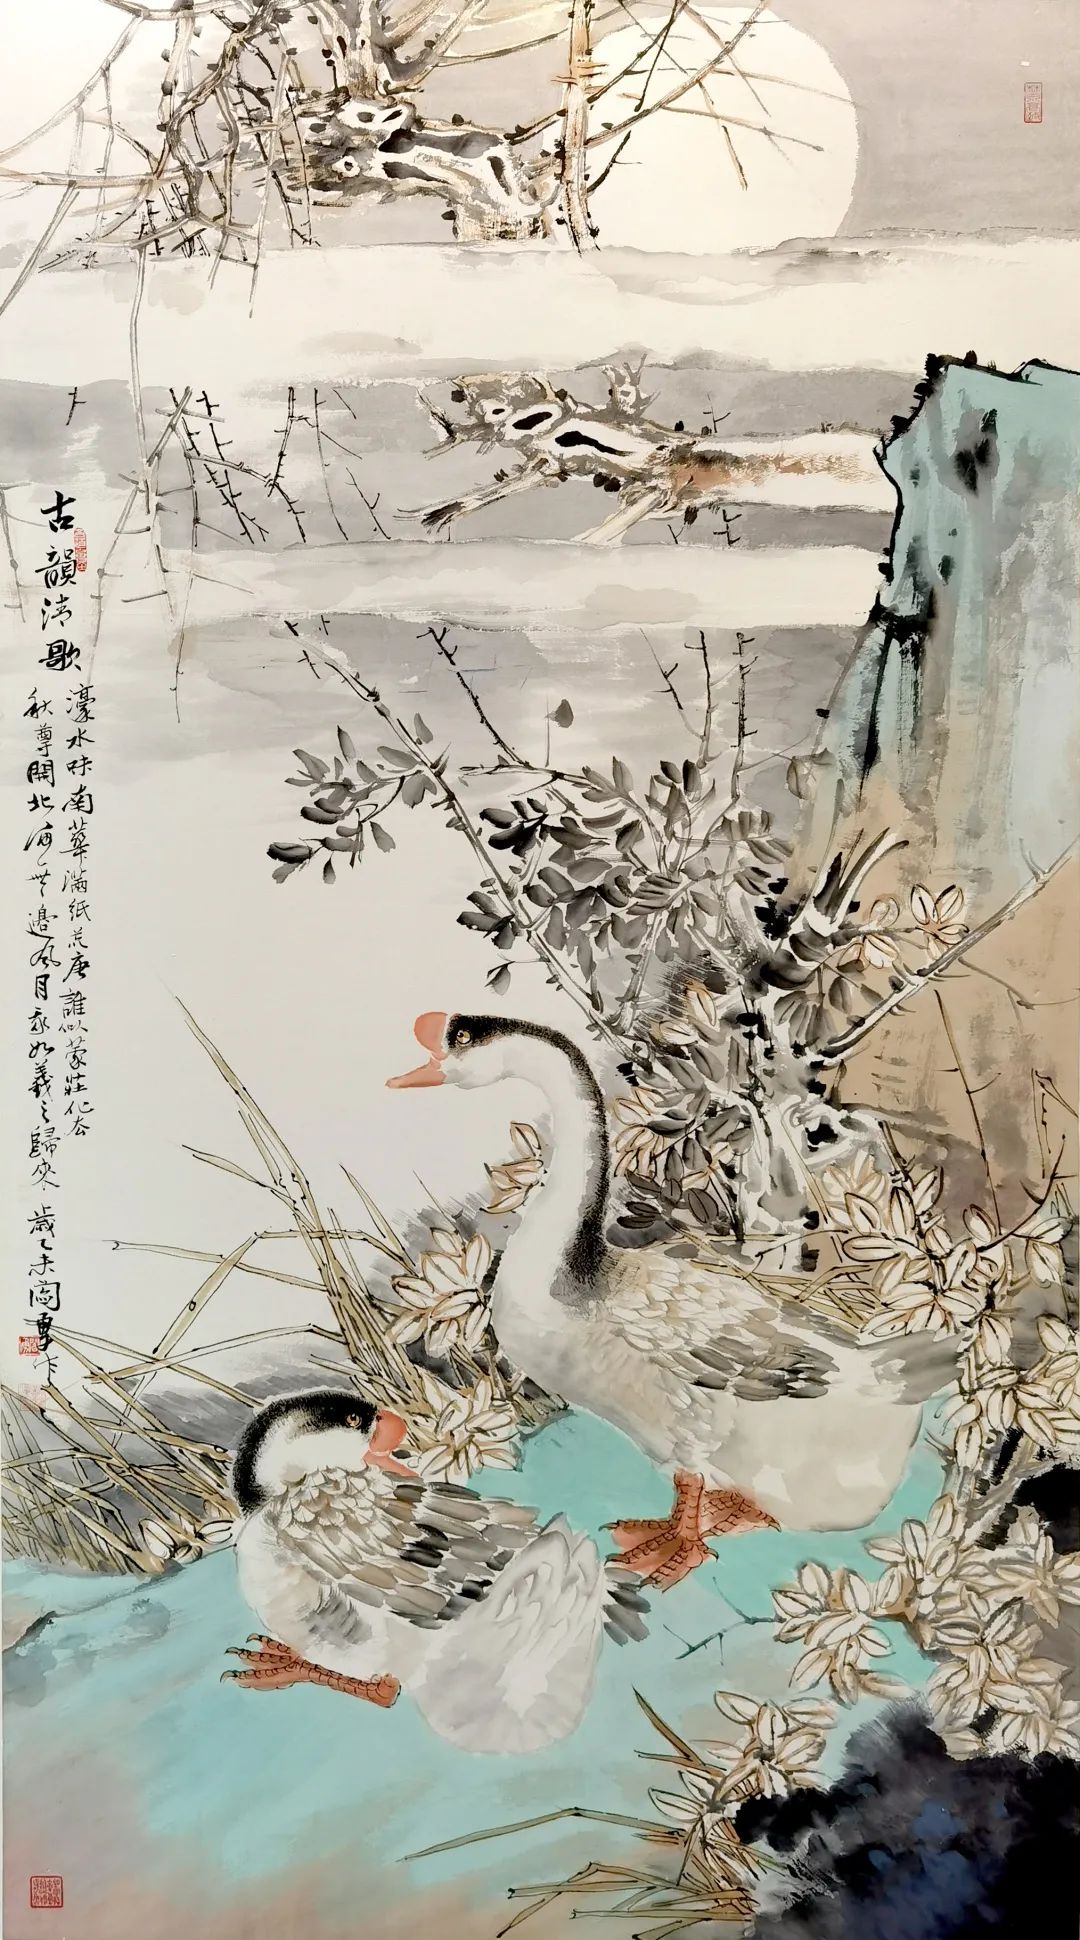 古韻清歌
濠水味南華滿紙荒唐誰似蒙莊化去
秋尊開北海無邊風月如羲之歸來 歲乙未閻勇作